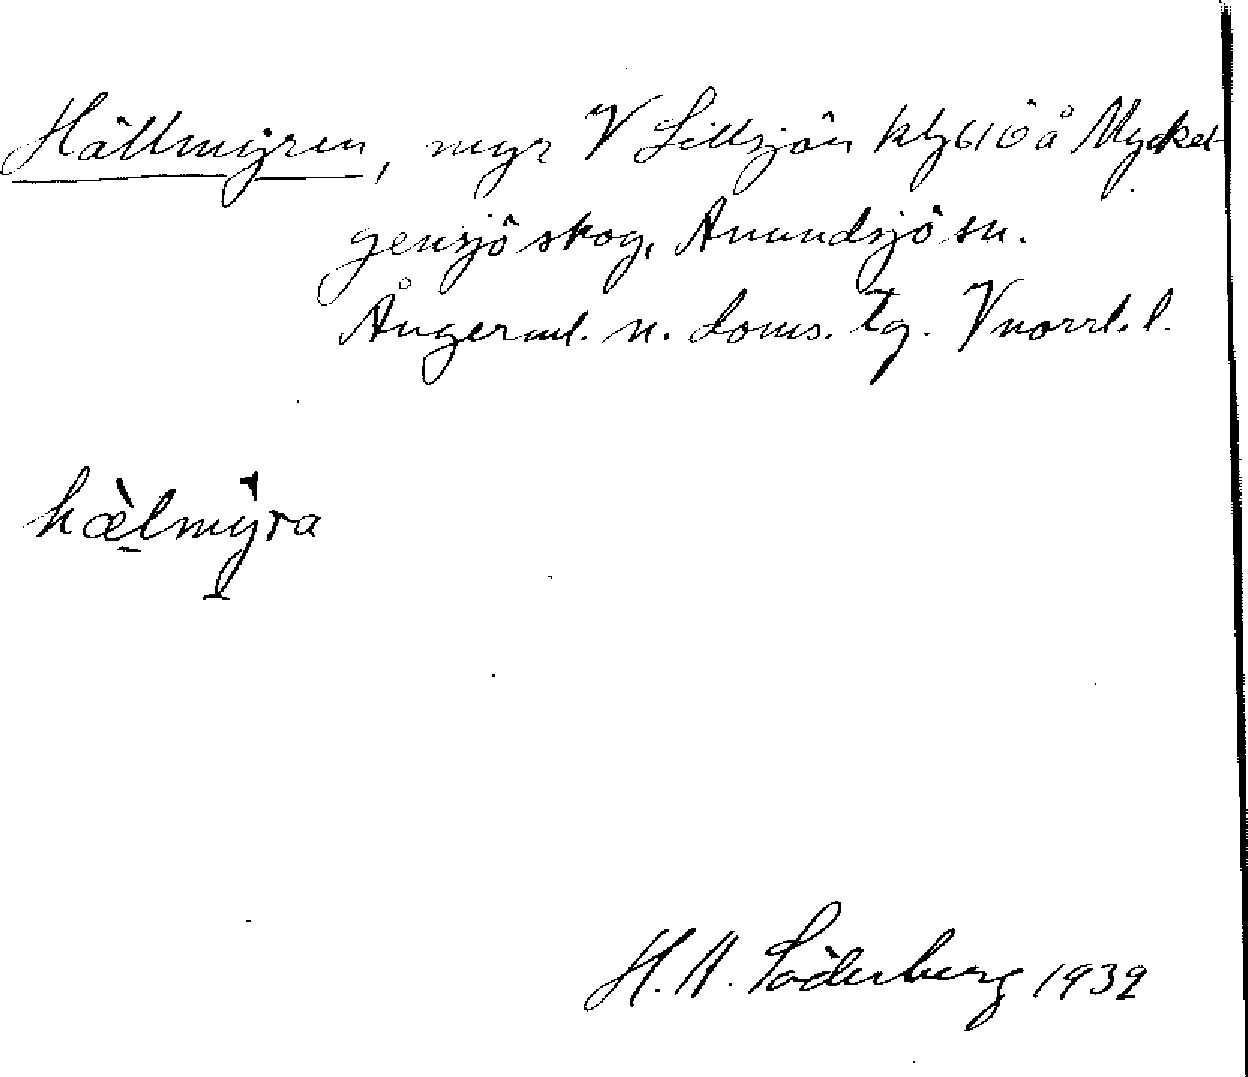 Hällmyren, myr V Lillsjön å Myckel-
gensjö skog, Anundsjö sn.
Ångerml. n. doms. tg. Vnorrl. l.
hælmyra
H. A. Söderberg 1932